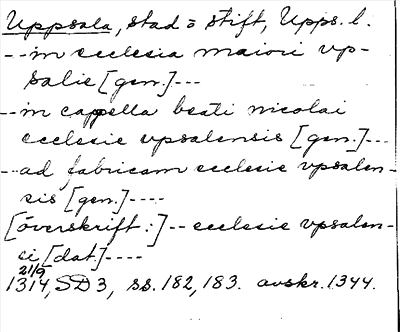 Uppsala, stad o stift, Upps. l.
-- in ecclesia maiori vp-
salie [gen.] ---
-- in cappella beati nicolai
ecclesie vpsalensis [gen.] ---
--- ad fabricam ecclesie vpsalen-
sis [gen.] ----
[överskrift:] -- ecclesie vpsalen-
ci [dat.] ----
21/9
1314, SD 3, ss. 182, 183. avskr. 1344.